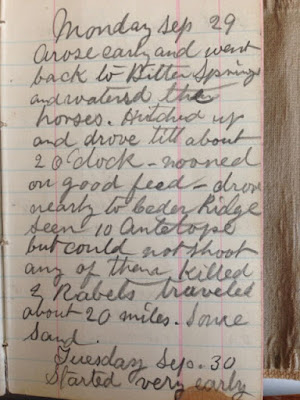 Monday Sep 29
Arose early and went
back to Bitter Springs
and waterd the
horses. Hitched up
and drove till about
2 O clock - nooned
on good feed - drove
nearly to Ceder Ridge
seen 10 Antelope
but could not shoot
any of them, killed
2 Rabels traveled
about 20 miles. Some
Sand.
Tuesday Sep. 30
Started very early